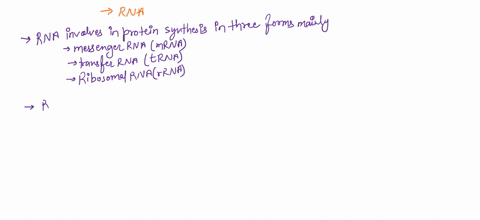 → RNA
→ RNA involves in protein synthesis in three forms mainly
→ messenger RNA (mRNA)
→ transfer RNA (tRNA)
→ Ribosomal RNA (rRNA)
→ R